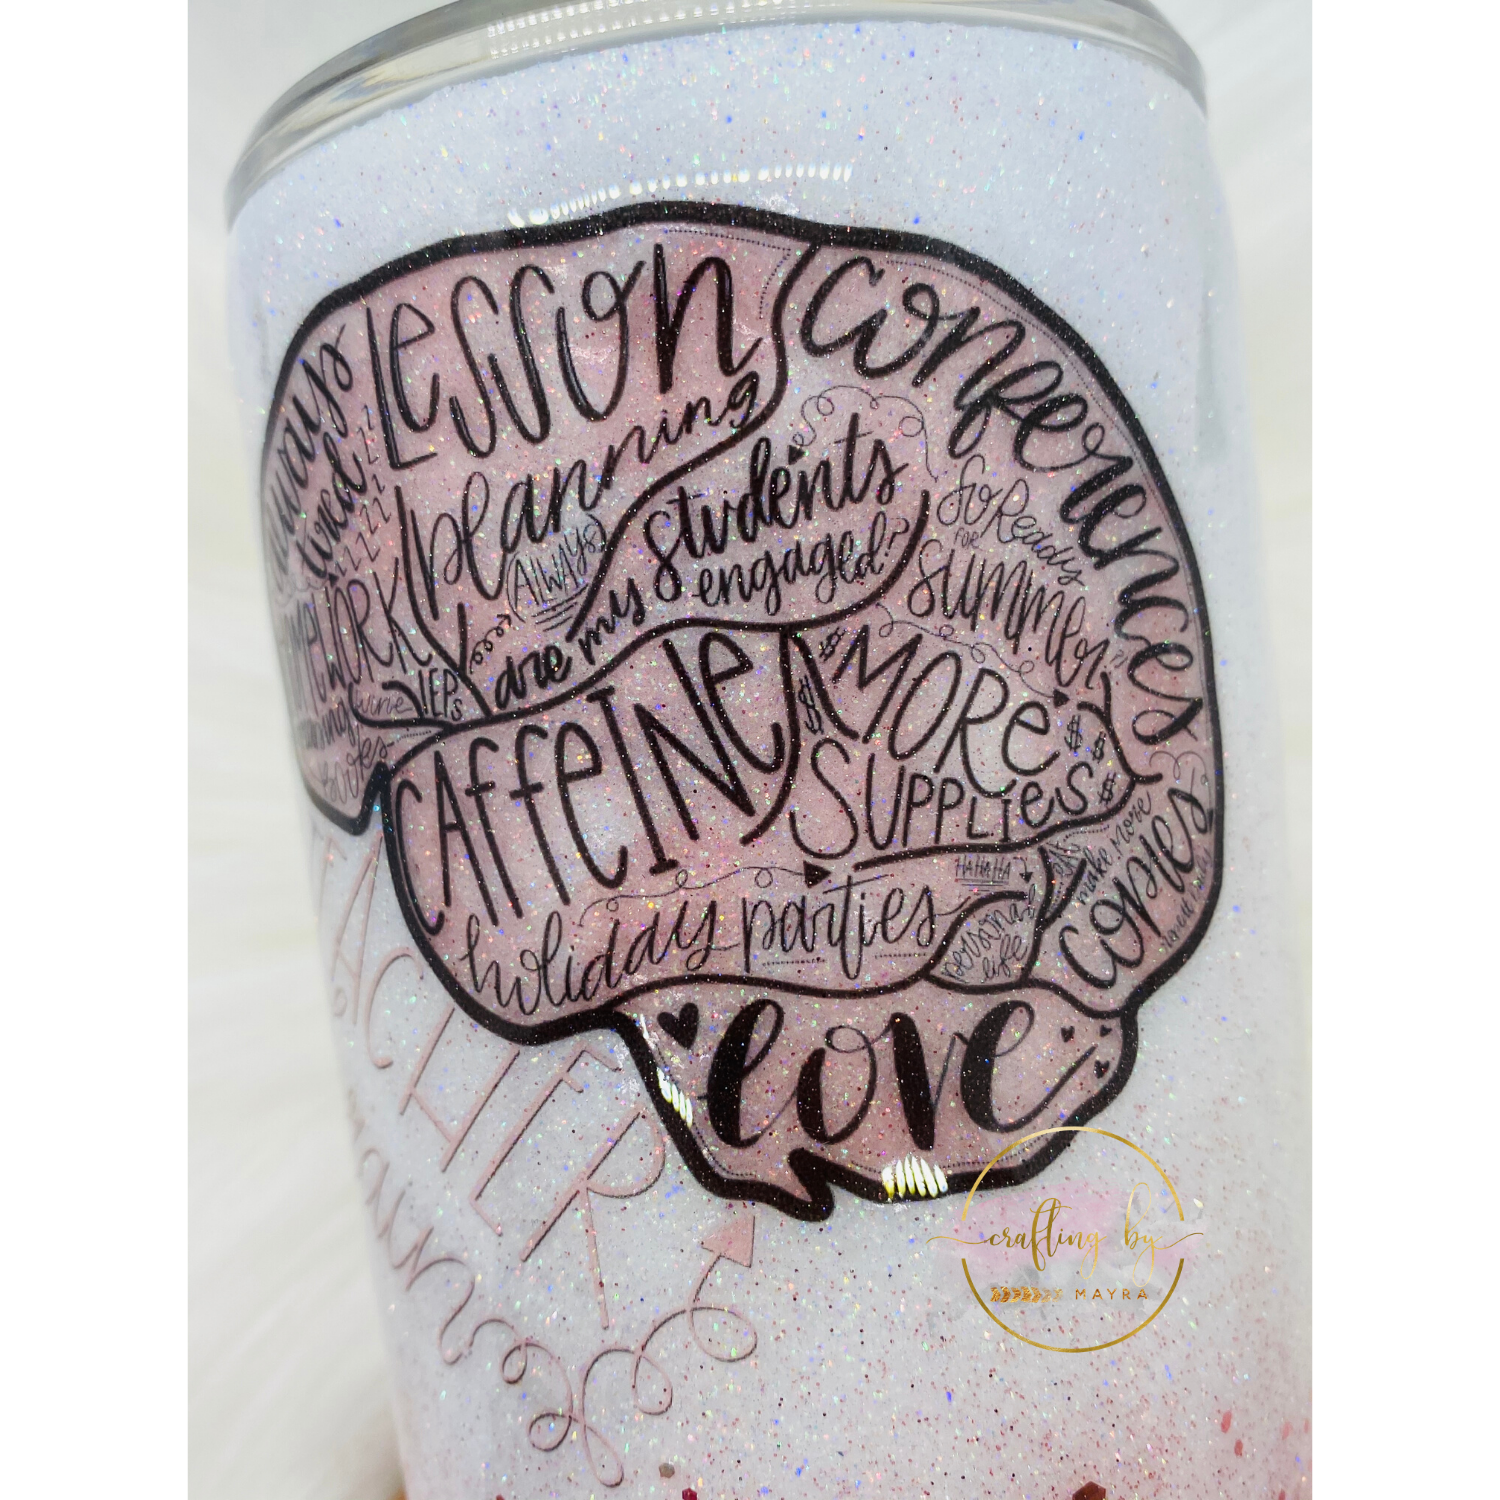 always
tired
zzzzzz
Lesson
planning
(ALWAYS)
conferences
are my students
engaged?
So Ready
FOR
summer
WORK
wine
IEPs
CAffeINe
$ MORe $
$ SUPPLIes $
$
HAHAHA
holiday parties
personal
life
make more
copies
love
TEACHER
crafting by
MAYRA